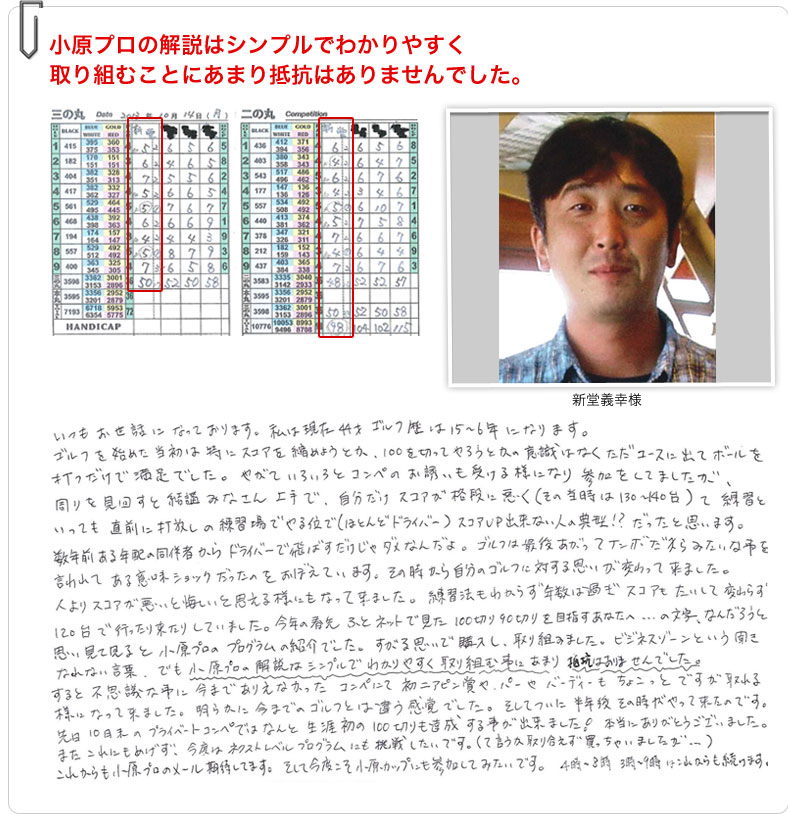 小原プロの解説はシンプルでわかりやすく
取り組むことにあまり抵抗はありませんでした。
三の丸 Date 2013年10月14日(月)
二の丸 Competition
BLACK BLUE GOLD
WHITE RED
1 415 395 360
375 353
2 182 170 151
151 151
3 404 382 328
351 313
4 417 382 332
362 327
5 561 529 464
495 445
6 468 438 392
398 363
7 194 174 157
164 147
8 557 529 465
9 400 363 325
345 305
3598 3382 3001
3153 2896 50 52 50 58
3595 3356 2952
3201 2879 36
7193 6718 5953
6354 5775 72
HANDICAP
BLACK BLUE GOLD
WHITE RED
1 436 412 371
394 356
2 403 380 343
358 343
3 543 517 486
496 462
4 177 147 136
136 126
5 557 534 492
508 492
6 440 413 381
374 362
7 378 347 321
326 311
8 212 182 152
159 143
9 437 403 365
384 338
3583 3335 3040
3142 2933 48 52 52 57
3595 3356 2952
3201 2879
3598 3382 3001
3153 2896 50 52 50 58
10776 10053 8993
9496 8708 98 104 102 115
新堂義幸様
いつもお世話になっております。私は現在44才ゴルフ歴は15〜6年になります。
ゴルフを始めた当初は特にスコアを縮めようとか、100を切ってやろうとかの意識はなくただコースに出てボールを
打つだけで満足でした。やがていろいろとコンペのお誘いも受ける様になり参加をしてましたが、
周りを見回すと結構みなさん上手で、自分だけスコアが格段に悪く(その当時は130〜140台)て練習と
いっても直前に打放しの練習場でやる位で(ほとんどドライバー)スコアUP出来ない人の典型!?だったと思います。
数年前ある年配の同伴者からドライバーで飛ばすだけじゃダメなんだよ。ゴルフは最後あがってナンボだからみたいな事を
言われてある意味ショックだったのをおぼえています。その時から自分のゴルフに対する思いが変わって来ました。
人よりスコアが悪いと悔しいと思える様にもなって来ました。練習法もわからず年数は過ぎスコアもたいして変わらず
120台で行ったり来たりしていました。今年の春先ふとネットで見た100切り90切りを目指すあなたへ…の文字、なんだろうと
思い見て見ると小原プロのプログラムの紹介でした。すがる思いで購入し、取り組みました。ビジネスゾーンという聞き
なれない言葉、でも小原プロの解説はシンプルでわかりやすく取り組む事にあまり抵抗はありませんでした。
すると不思議な事に今までありえなかったコンペにて初ニアピン賞や、パーやバーディーもちょこっとですが取れる
様になって来ました。明らかに今までのゴルフとは違う感覚でした。そしてついに半年後その時がやって来たのです。
先日10月末のプライベートコンペではなんと生涯初の100切りも達成する事が出来ました!本当にありがとうございました。
またこれにもめげず、今度はネクストレベルプログラムにも挑戦したいです。(て言うか取り合えず買っちゃいましたが…)
これからも小原プロのメール期待してます。そして今度こそ小原カップにも参加してみたいです。 4時〜8時 3時〜9時はこれからも続けます。